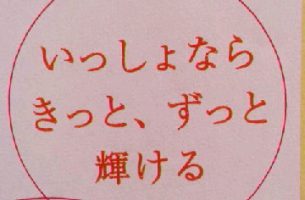 いっしょなら
きっと、ずっと
輝ける